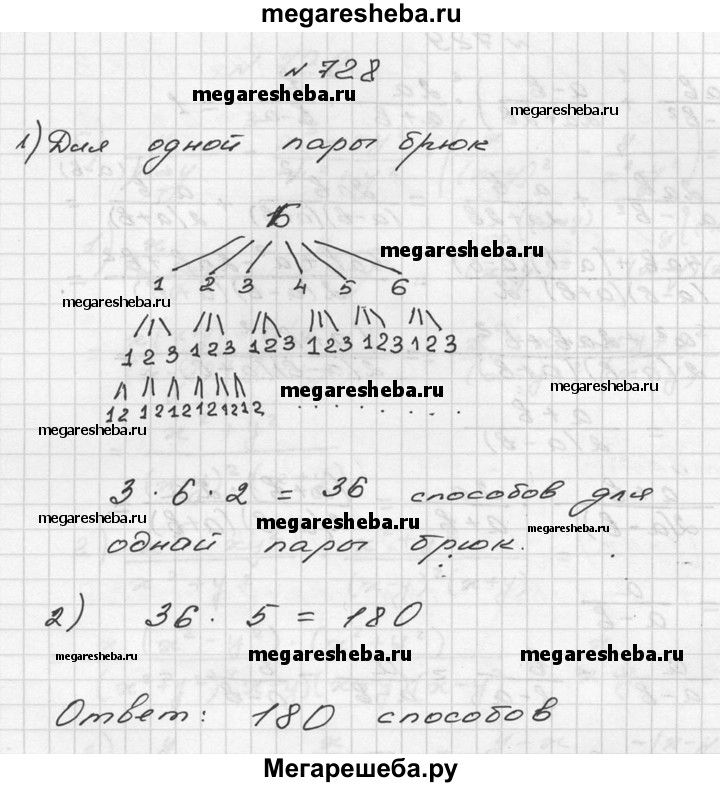 megaresheba.ru
№ 728
megaresheba.ru
megaresheba.ru
1) Для одной пары брюк
Б
megaresheba.ru
1 2 3 4 5 6
megaresheba.ru
1 2 3 1 2 3 1 2 3 1 2 3 1 2 3 1 2 3
megaresheba.ru
megaresheba.ru
12 12 12 12 12 12 . . . . . . . .
megaresheba.ru
3 · 6 · 2 = 36 способов для
megaresheba.ru
megaresheba.ru
megaresheba.ru
одной пары брюк.
2) 36 · 5 = 180
megaresheba.ru
megaresheba.ru
megaresheba.ru
Ответ: 180 способов
Мегарешеба.ру